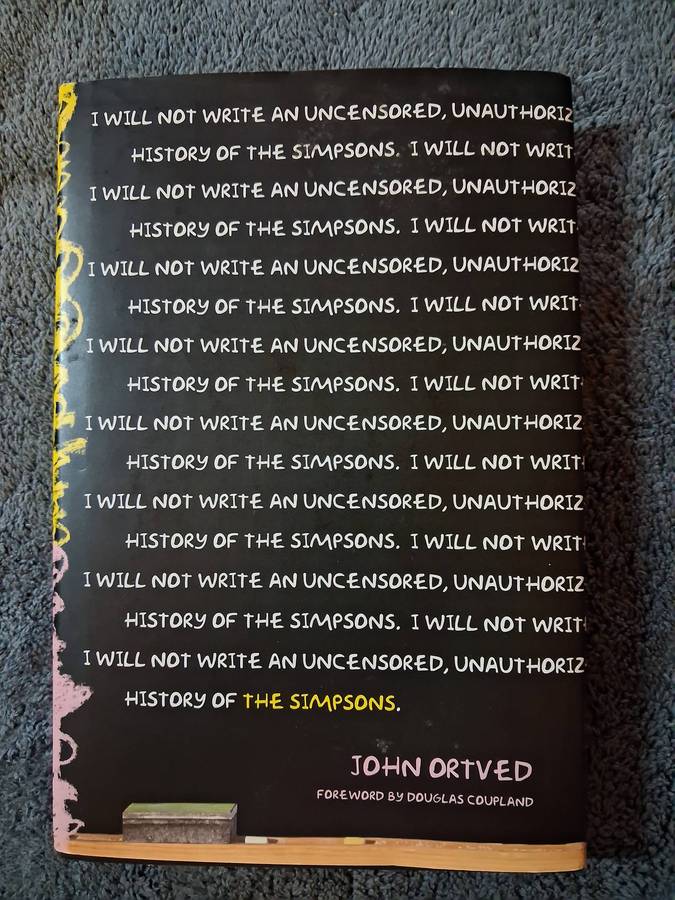 I WILL NOT WRITE AN UNCENSORED, UNAUTHORIZ
HISTORY OF THE SIMPSONS. I WILL NOT WRIT
I WILL NOT WRITE AN UNCENSORED, UNAUTHORIZ
HISTORY OF THE SIMPSONS. I WILL NOT WRIT
I WILL NOT WRITE AN UNCENSORED, UNAUTHORIZ
HISTORY OF THE SIMPSONS. I WILL NOT WRIT
I WILL NOT WRITE AN UNCENSORED, UNAUTHORIZ
HISTORY OF THE SIMPSONS. I WILL NOT WRIT
I WILL NOT WRITE AN UNCENSORED, UNAUTHORIZ
HISTORY OF THE SIMPSONS. I WILL NOT WRIT
I WILL NOT WRITE AN UNCENSORED, UNAUTHORIZ
HISTORY OF THE SIMPSONS. I WILL NOT WRIT
I WILL NOT WRITE AN UNCENSORED, UNAUTHORIZ
HISTORY OF THE SIMPSONS. I WILL NOT WRIT
I WILL NOT WRITE AN UNCENSORED, UNAUTHORIZ
HISTORY OF THE SIMPSONS.
JOHN ORTVED
FOREWORD BY DOUGLAS COUPLAND